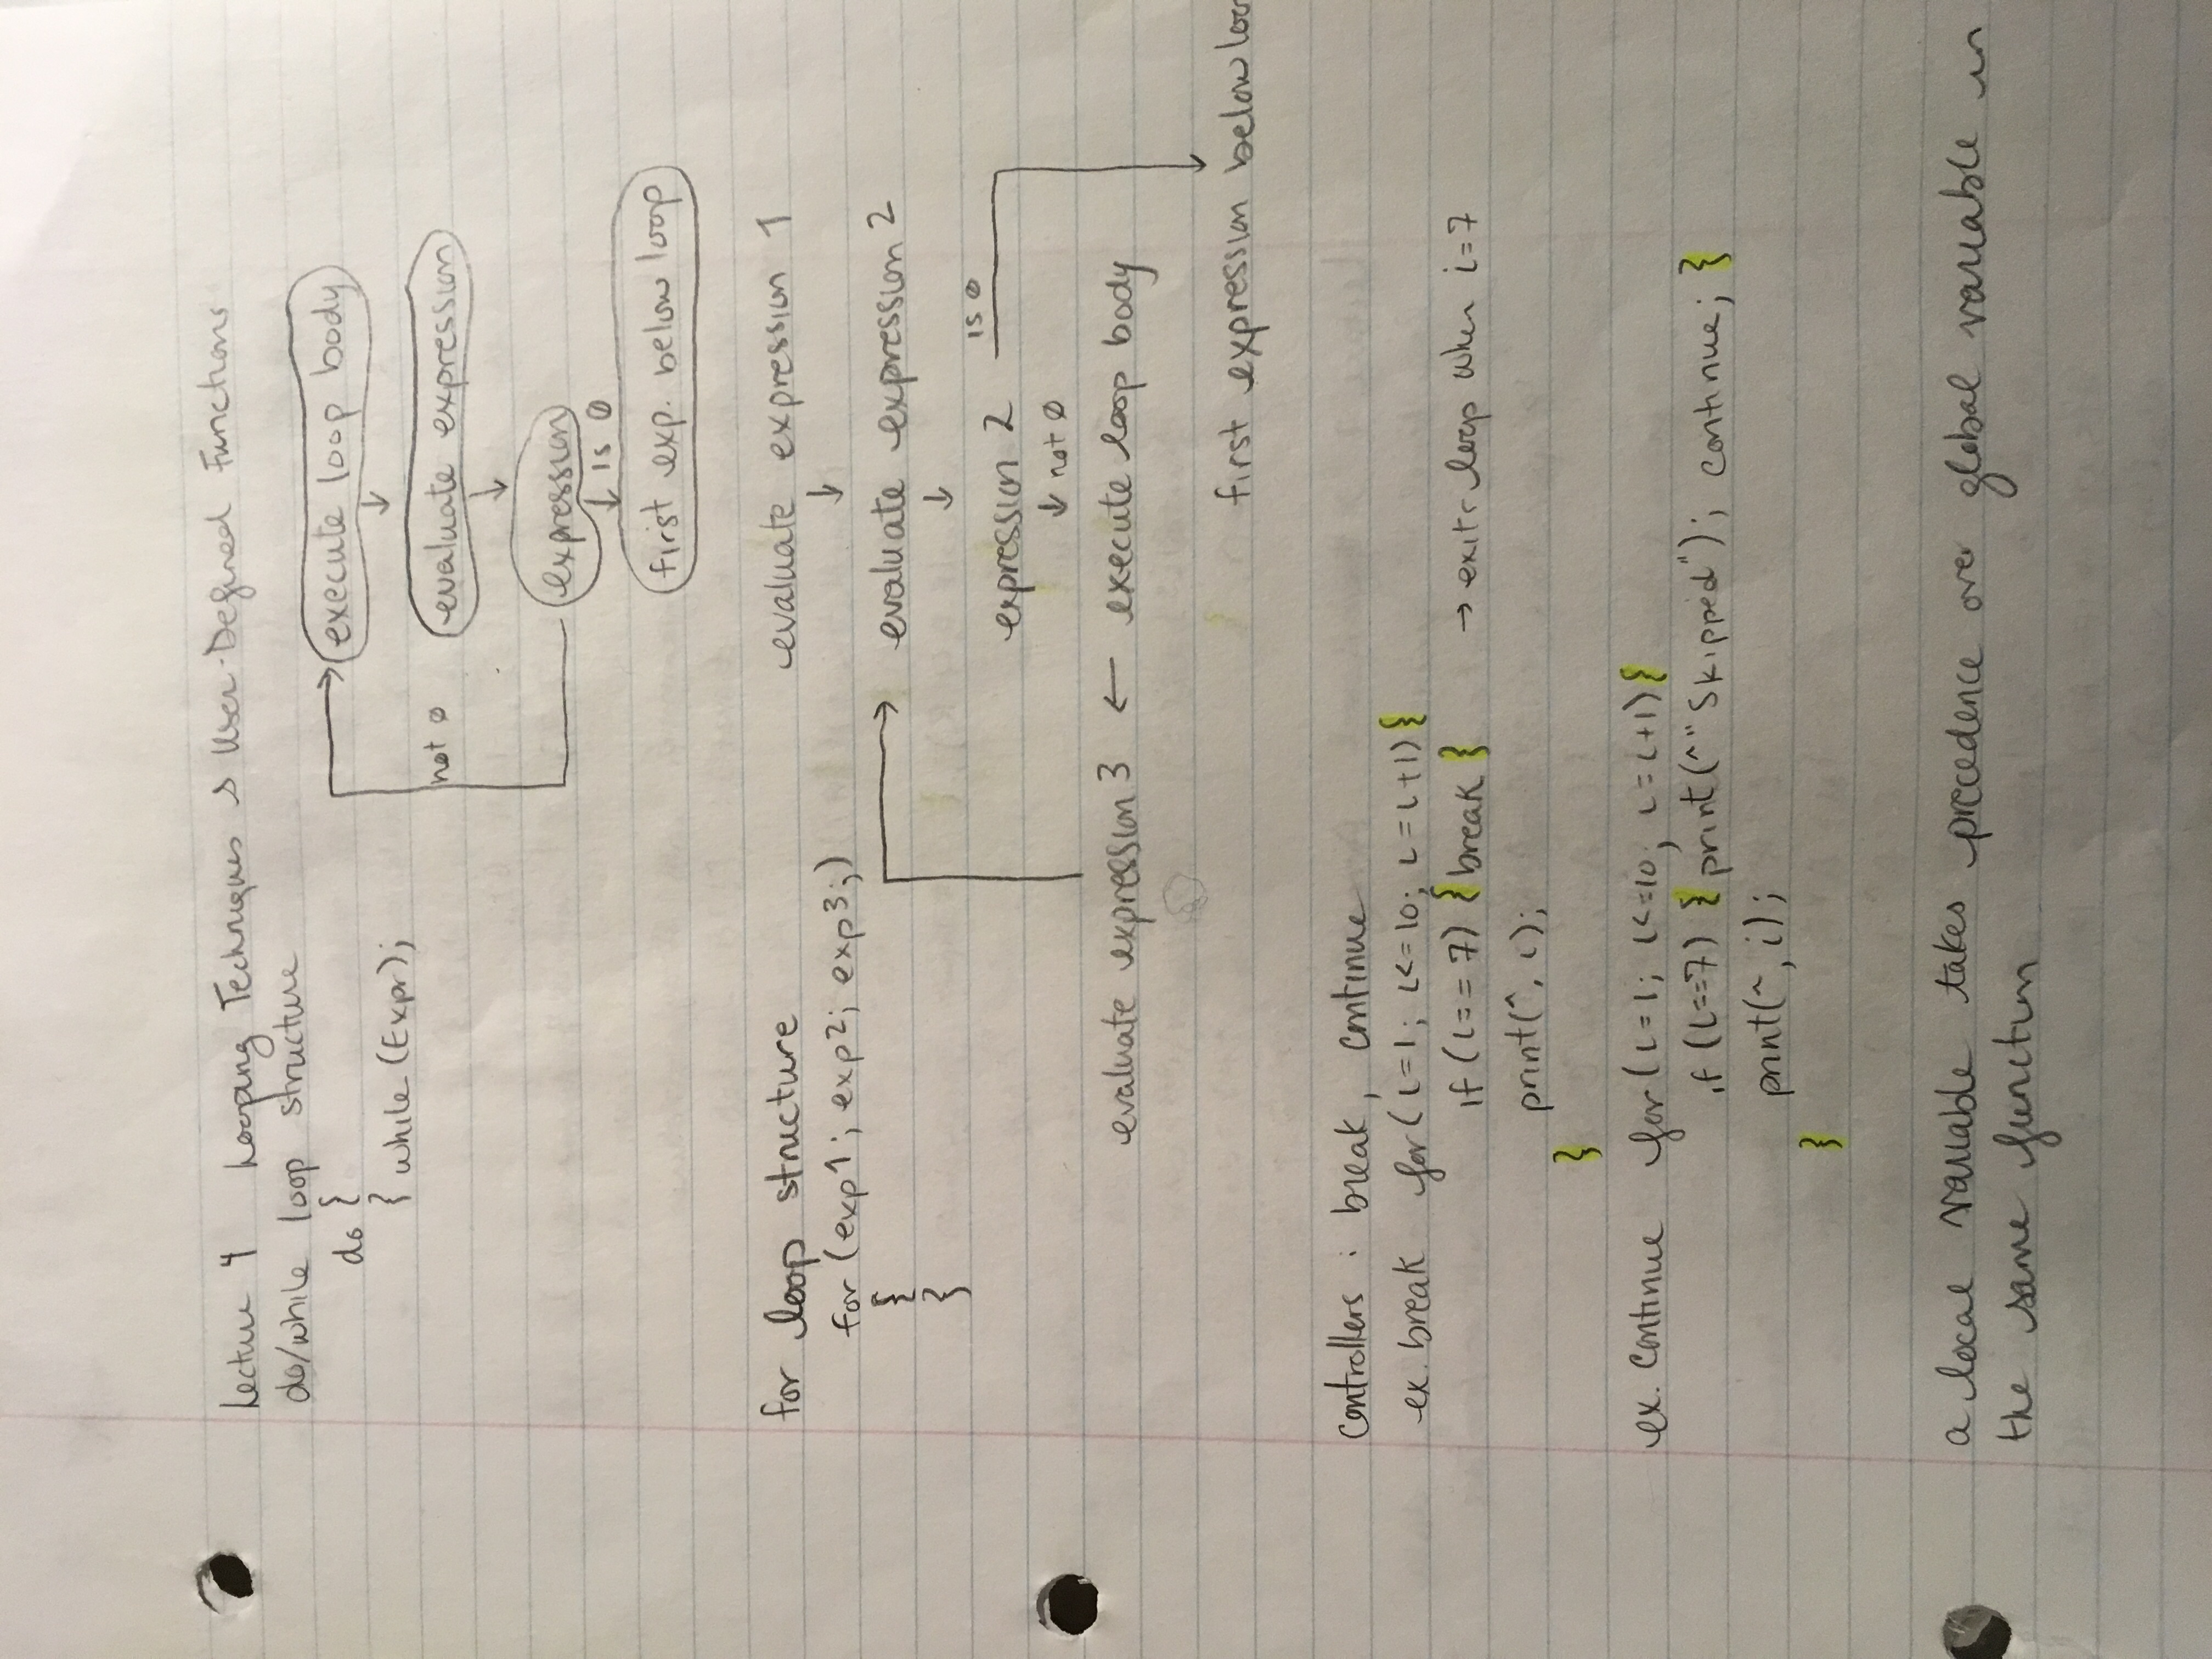 Lecture 4 Looping Techniques & User-Defined Functions
do/while loop structure
do {
} while (Expr);
execute loop body
↓
evaluate expression
not 0
↓
expression
↓ is 0
first exp. below loop
for loop structure
for (exp1; exp2; exp3;)
{
}
evaluate expression 1
↓
evaluate expression 2
↓
expression 2 is 0
↓ not 0
evaluate expression 3 ← execute loop body
first expression below loop
Controllers : break, continue
ex. break for (i=1; i<=10; i=i+1) {
if (i==7) { break } → exits loop when i=7
print(~, i);
}
ex. continue for (i=1; i<=10; i=i+1) {
if (i==7) { print(~"Skipped"); continue; }
print(~, i);
}
a local variable takes precedence over global variable in
the same function